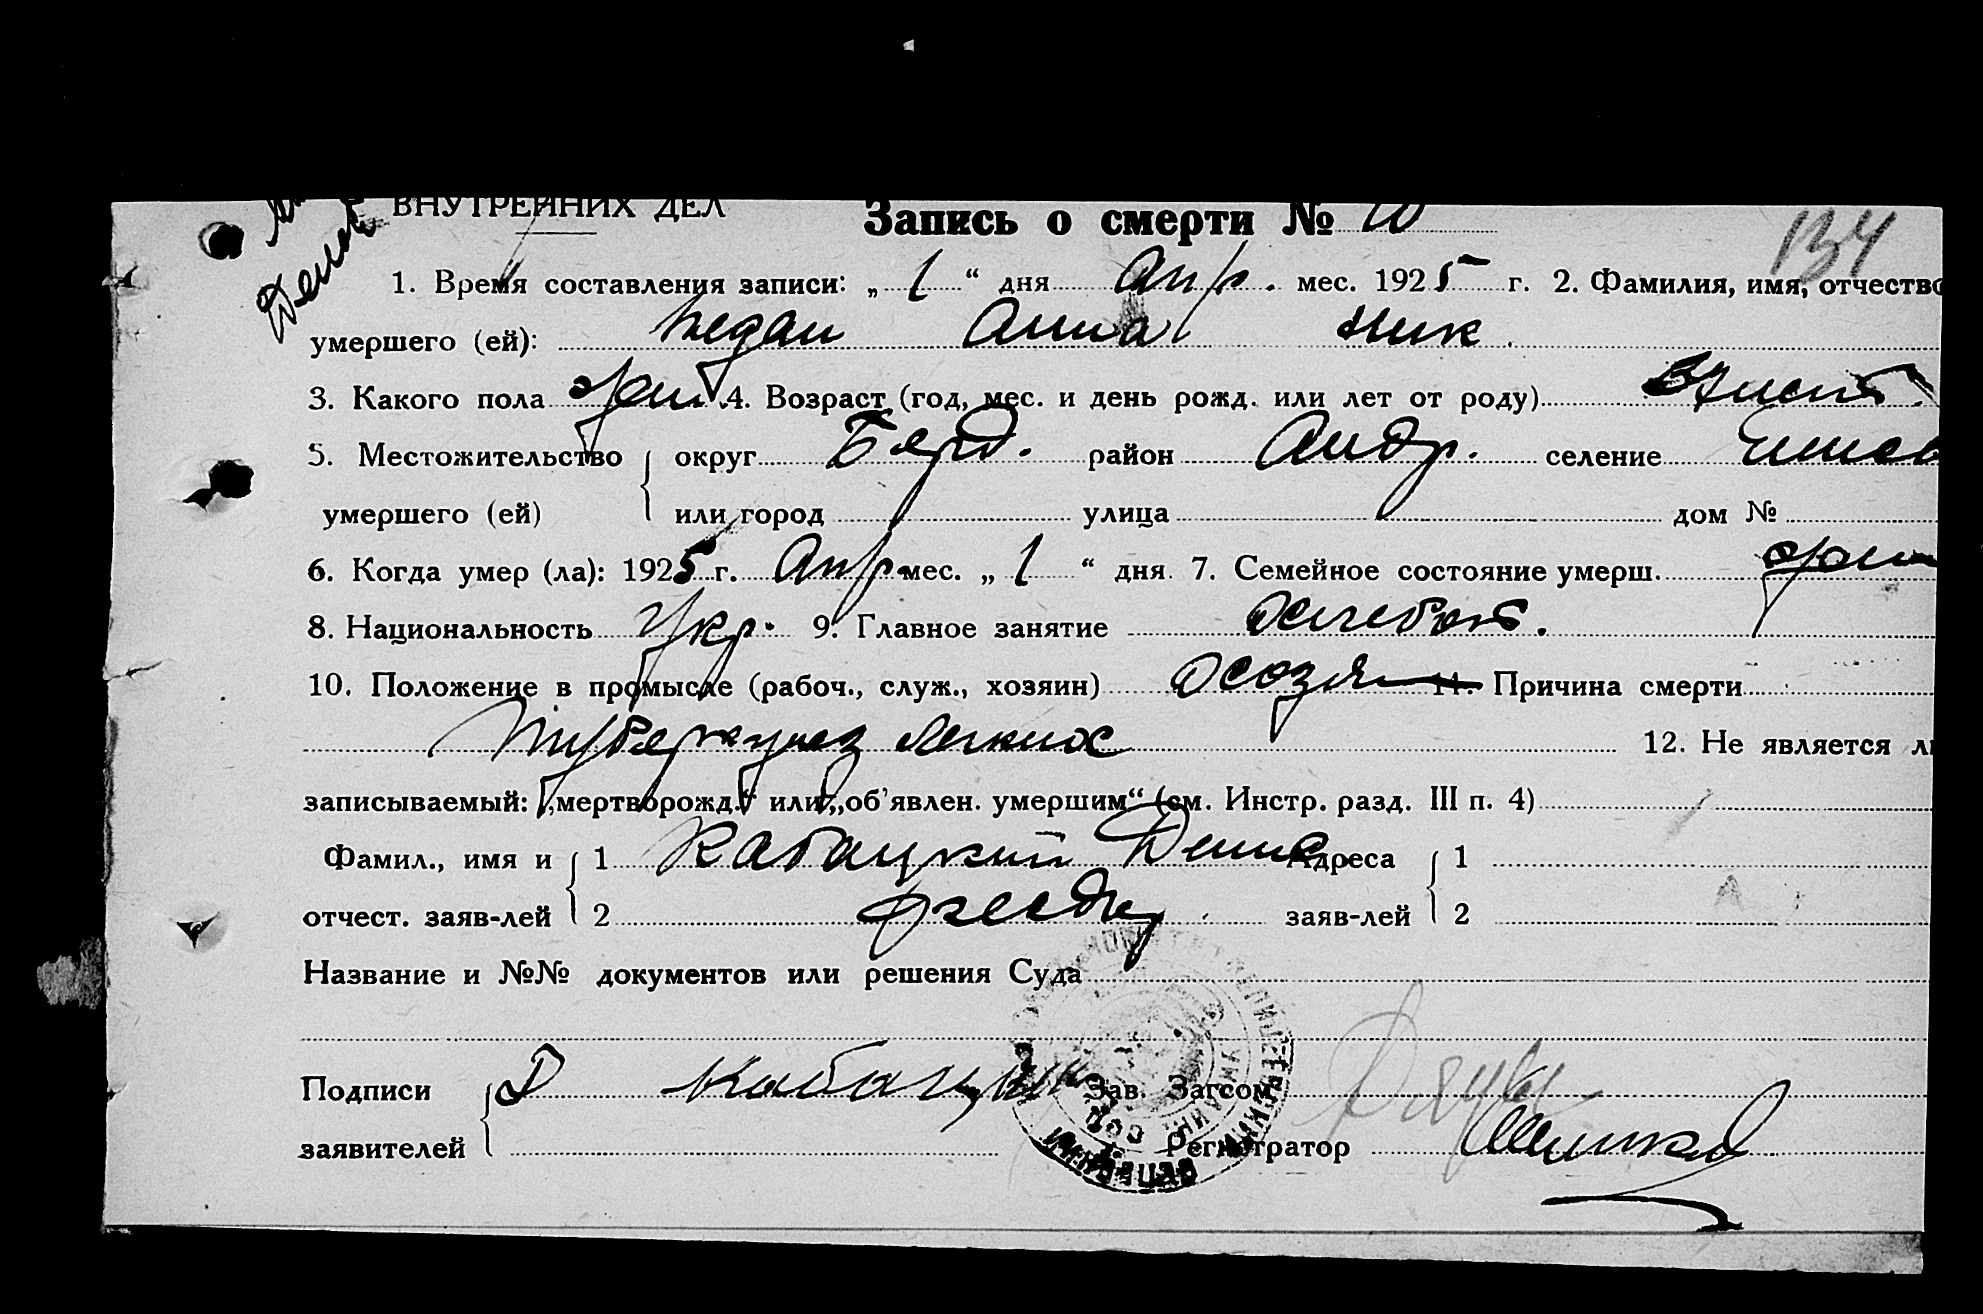 ВНУТРЕННИХ ДЕЛ Запись о смерти № 10 134
1. Время составления записи: „ 1 “ дня Апр. мес. 1925 г. 2. Фамилия, имя, отчество
умершего (ей): Анна Ник
3. Какого пола жен. 4. Возраст (год, мес. и день рожд. или лет от роду)
5. Местожительство округ Берд. район Андр. селение
умершего (ей) или город улица дом №
6. Когда умер (ла): 1925 г. Апр. мес. „ 1 “ дня 7. Семейное состояние умерш.
8. Национальность Укр. 9. Главное занятие Хлебоп.
10. Положение в промысле (рабоч., служ., хозяин) 11. Причина смерти
Туберкулез легких 12. Не является
записываемый: „мертворожд.“ или „об'явлен. умершим“ (см. Инстр. разд. III п. 4)
Фамил., имя и 1 Кабацкий Денис Адреса 1
отчест. заяв-лей 2 заяв-лей 2
Название и №№ документов или решения Суда
Подписи Д Кабацкий Зав. Загсом
заявителей Регистратор